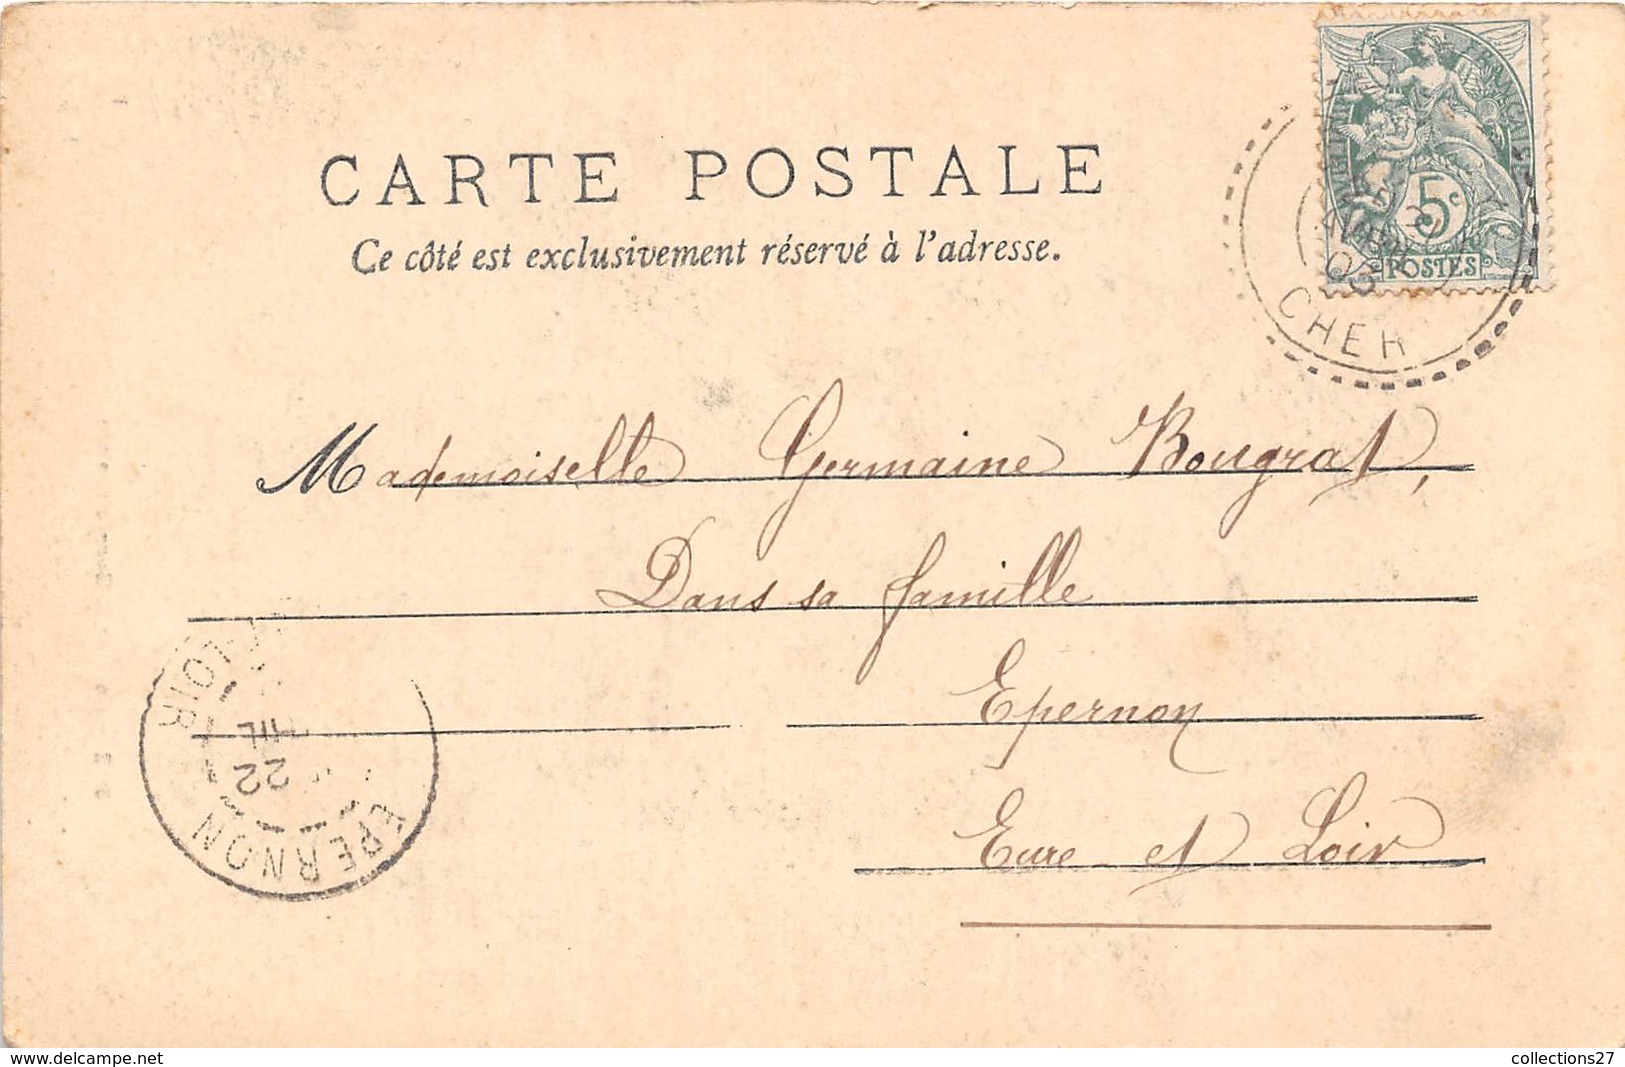 CARTE POSTALE
Ce côté est exclusivement réservé à l'adresse.
FRANÇAISE
5c
POSTES
05
CHER
Mademoiselle Germaine Bougrat,
Dans sa famille
Epernon
Eure et Loir
LOIR
22
EPERNON
collections27